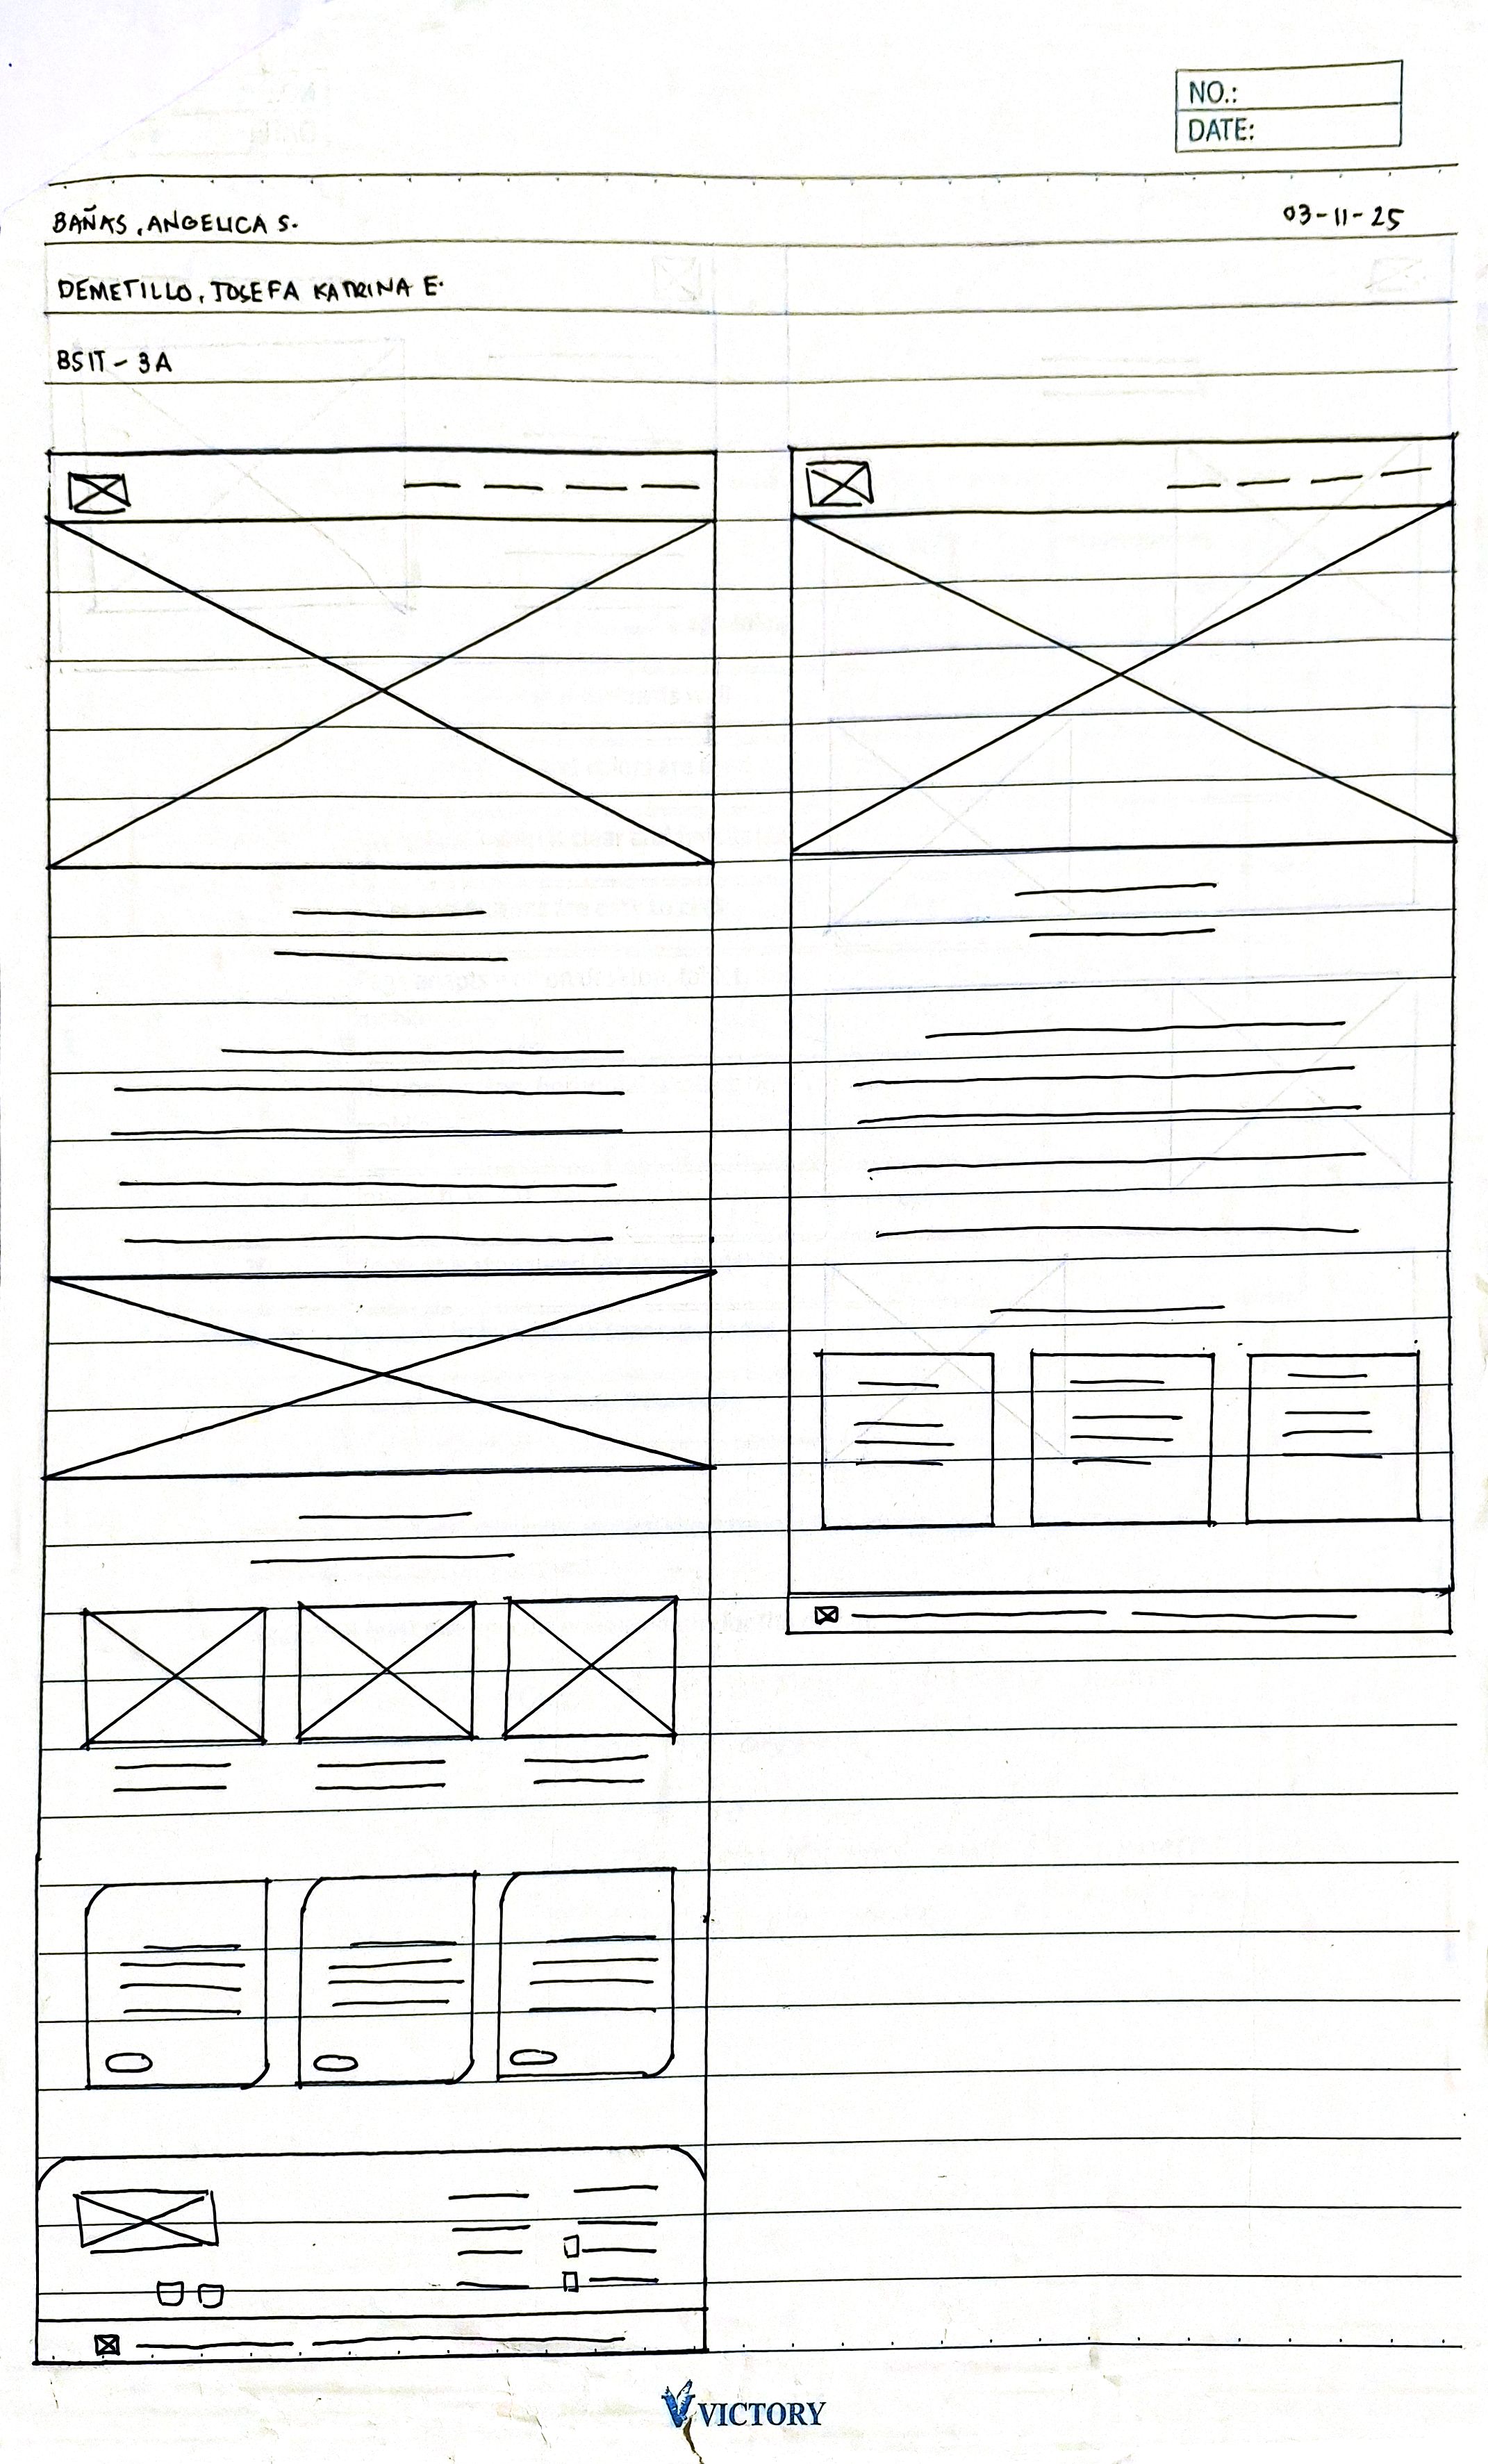 NO.:
DATE:
BAÑAS, ANGELICA S.
03-11-25
DEMETILLO, JOSEFA KATRINA E.
BSIT - 3A
VICTORY